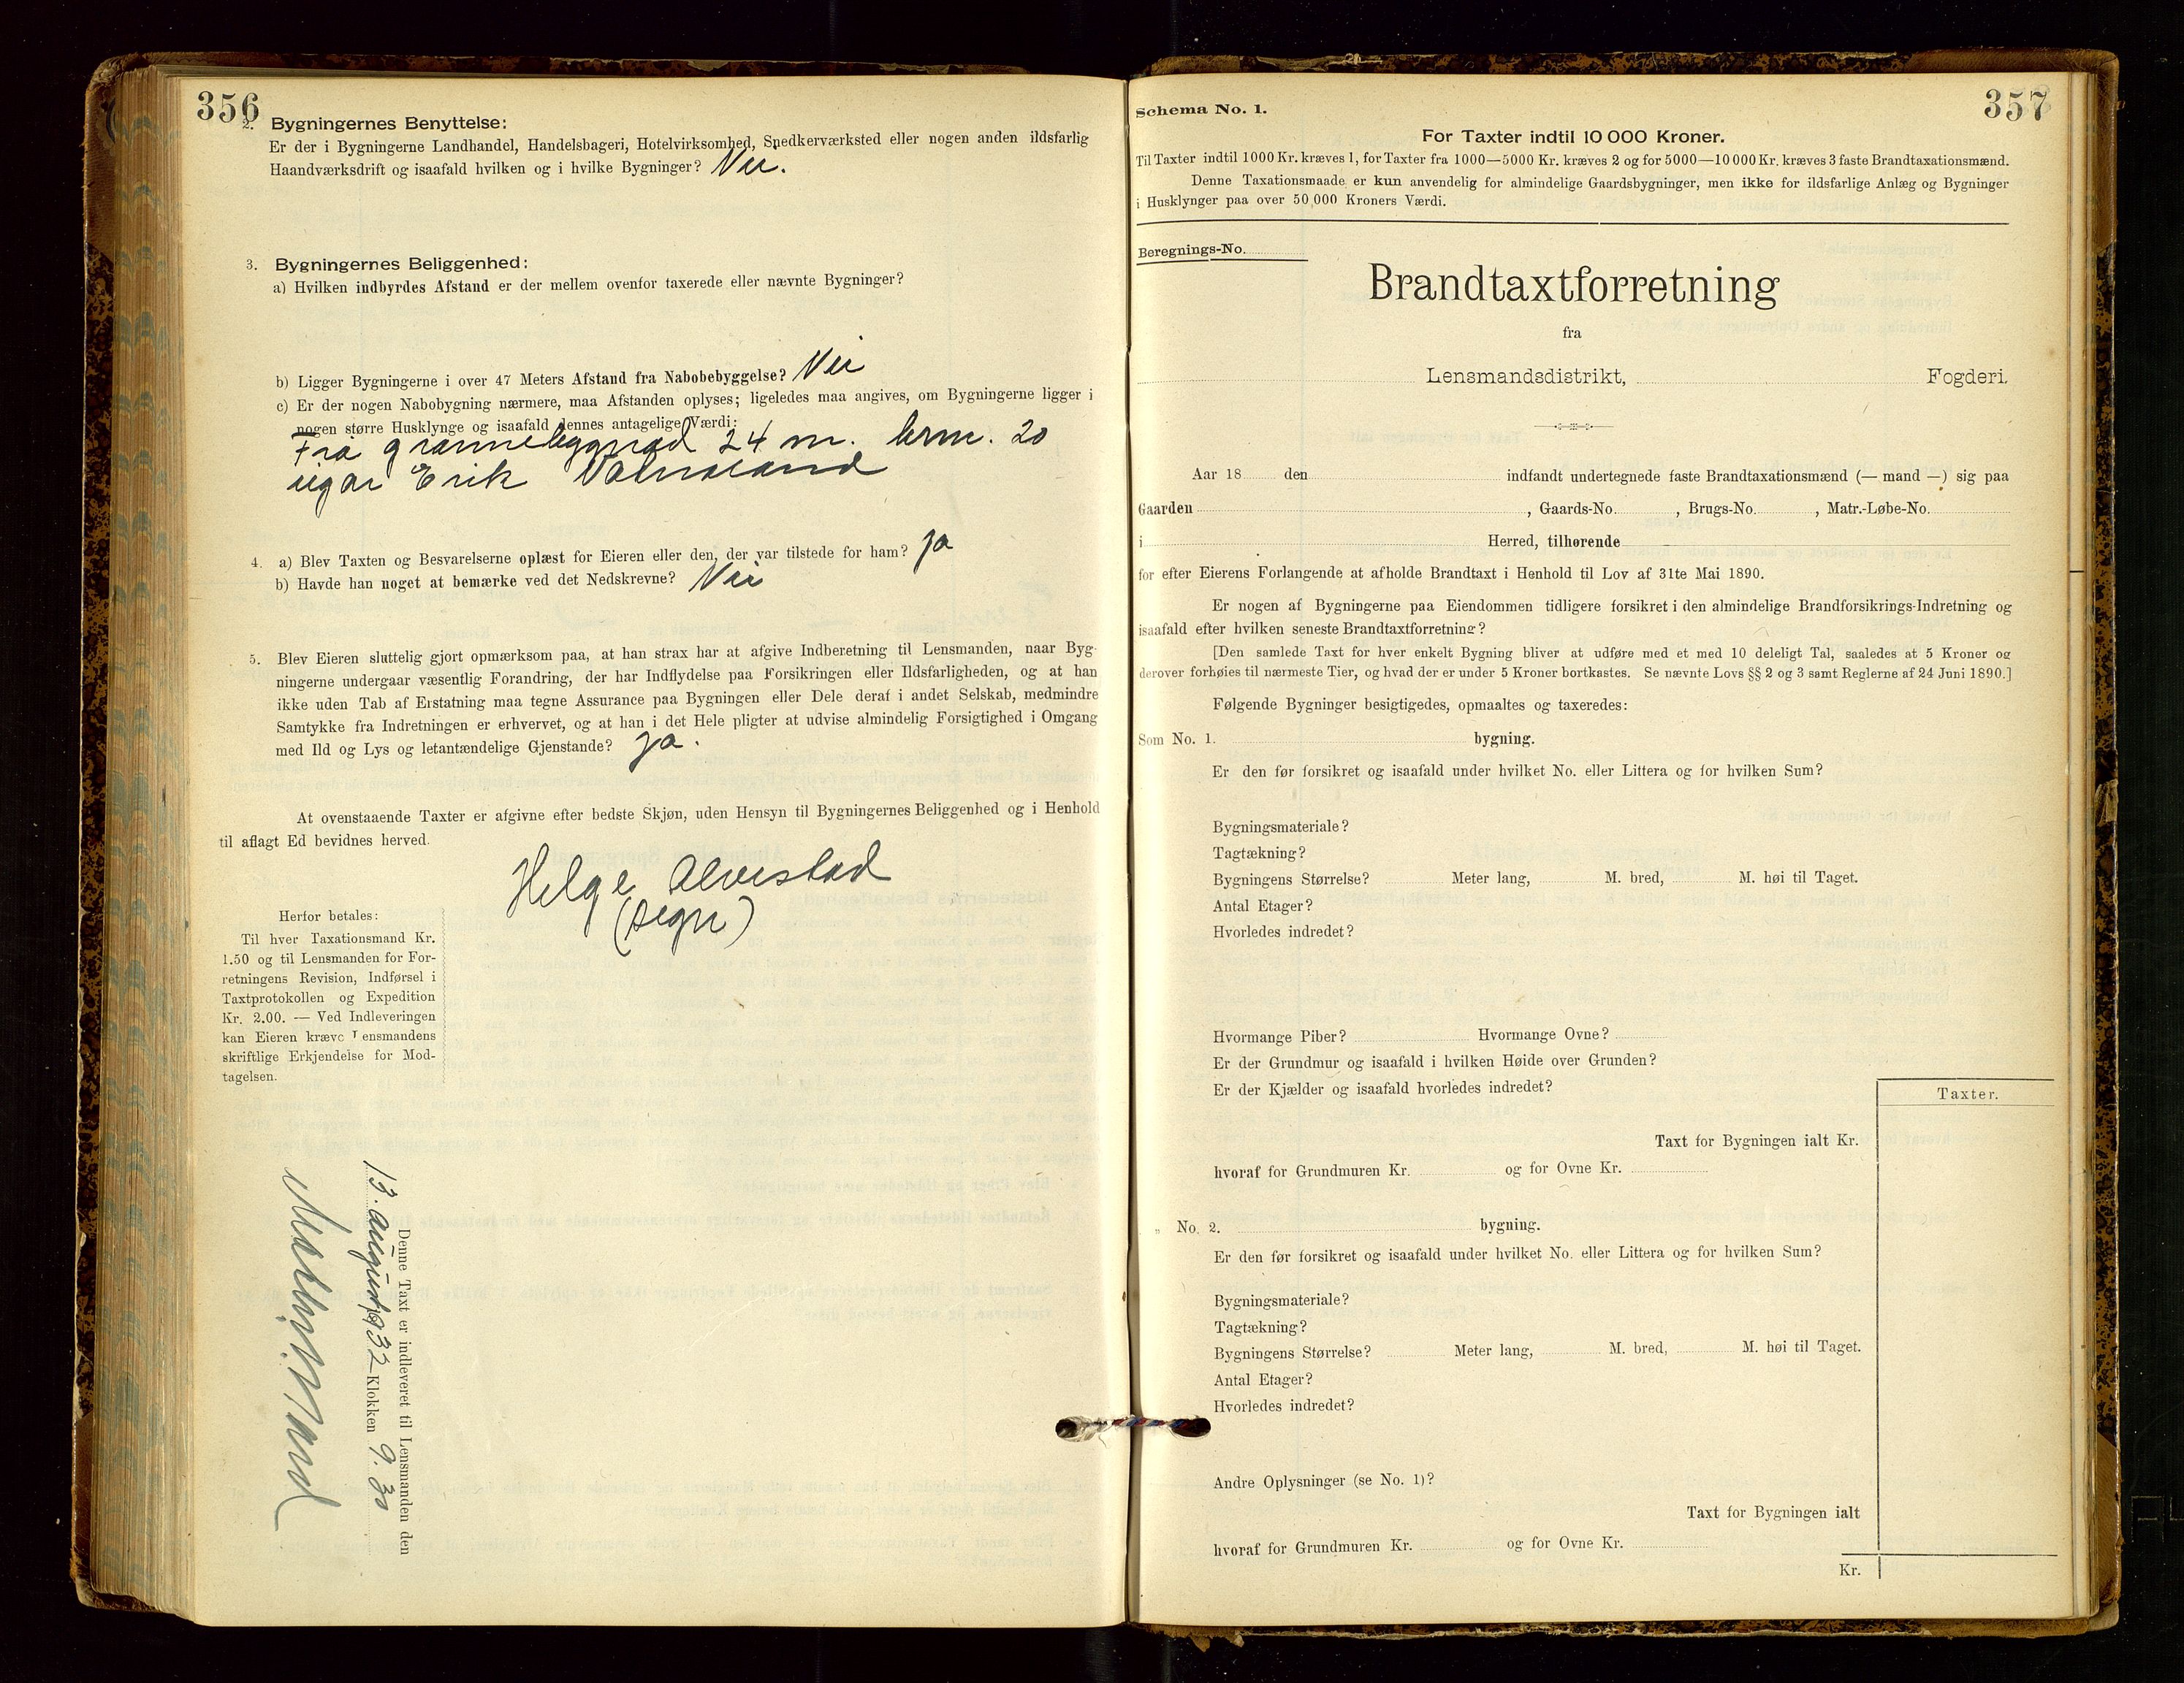 356
2. Bygningernes Benyttelse:
Er der i Bygningerne Landhandel, Handelsbageri, Hotelvirksomhed, Snedkerværksted eller nogen anden ildsfarlig
Haandværksdrift og isaafald hvilken og i hvilke Bygninger? Nei.
3. Bygningernes Beliggenhed:
a) Hvilken indbyrdes Afstand er der mellem ovenfor taxerede eller nævnte Bygninger?
b) Ligger Bygningerne i over 47 Meters Afstand fra Nabobebyggelse? Nei
c) Er der nogen Nabobygning nærmere, maa Afstanden oplyses; ligeledes maa angives, om Bygningerne ligger i
nogen større Husklynge og isaafald dennes antagelige Værdi:
Frå grannebygnad 24 m. brm. 20
eigar Erik
4. a) Blev Taxten og Besvarelserne oplæst for Eieren eller den, der var tilstede for ham? ja
b) Havde han noget at bemærke ved det Nedskrevne? Nei
5. Blev Eieren sluttelig gjort opmærksom paa, at han strax har at afgive Indberetning til Lensmanden, naar Byg-
ningerne undergaar væsentlig Forandring, der har Indflydelse paa Forsikringen eller Ildsfarligheden, og at han
ikke uden Tab af Erstatning maa tegne Assurance paa Bygningen eller Dele deraf i andet Selskab, medmindre
Samtykke fra Indretningen er erhvervet, og at han i det Hele pligter at udvise almindelig Forsigtighed i Omgang
med Ild og Lys og letantændelige Gjenstande? ja.
At ovenstaaende Taxter er afgivne efter bedste Skjøn, uden Hensyn til Bygningernes Beliggenhed og i Henhold
til aflagt Ed bevidnes herved.
Helge Alvestad
(sign)
Herfor betales:
Til hver Taxationsmand Kr.
1.50 og til Lensmanden for For-
retningens Revision, Indførsel i
Taxtprotokollen og Expedition
Kr. 2.00. — Ved Indleveringen
kan Eieren kræve Lensmandens
skriftlige Erkjendelse for Mod-
tagelsen.
Denne Taxt er indleveret til Lensmanden den
13. august 1932 Klokken 9.30
357
Schema No. 1.
For Taxter indtil 10 000 Kroner.
Til Taxter indtil 1000 Kr. kræves 1, for Taxter fra 1000—5000 Kr. kræves 2 og for 5000—10 000 Kr. kræves 3 faste Brandtaxationsmænd.
Denne Taxationsmaade er kun anvendelig for almindelige Gaardsbygninger, men ikke for ildsfarlige Anlæg og Bygninger
i Husklynger paa over 50,000 Kroners Værdi.
Beregnings-No.
Brandtaxtforretning
fra
Lensmandsdistrikt, Fogderi.
Aar 18 den indfandt undertegnede faste Brandtaxationsmænd (— mand —) sig paa
Gaarden , Gaards-No. , Brugs-No. , Matr.-Løbe-No.
i Herred, tilhørende
for efter Eierens Forlangende at afholde Brandtaxt i Henhold til Lov af 31te Mai 1890.
Er nogen af Bygningerne paa Eiendommen tidligere forsikret i den almindelige Brandforsikrings-Indretning og
isaafald efter hvilken seneste Brandtaxtforretning?
[Den samlede Taxt for hver enkelt Bygning bliver at udføre med et med 10 deleligt Tal, saaledes at 5 Kroner og
derover forhøies til nærmeste Tier, og hvad der er under 5 Kroner bortkastes. Se nævnte Lovs §§ 2 og 3 samt Reglerne af 24 Juni 1890.]
Følgende Bygninger besigtigedes, opmaaltes og taxeredes:
Som No. 1. bygning.
Er den før forsikret og isaafald under hvilket No. eller Littera og for hvilken Sum?
Bygningsmateriale?
Tagtækning?
Bygningens Størrelse? Meter lang, M. bred, M. høi til Taget.
Antal Etager?
Hvorledes indredet?
Hvormange Piber? Hvormange Ovne?
Er der Grundmur og isaafald i hvilken Høide over Grunden?
Er der Kjælder og isaafald hvorledes indredet?
Taxter.
Taxt for Bygningen ialt Kr.
hvoraf for Grundmuren Kr. og for Ovne Kr.
„ No. 2. bygning.
Er den før forsikret og isaafald under hvilket No. eller Littera og for hvilken Sum?
Bygningsmateriale?
Tagtækning?
Bygningens Størrelse? Meter lang, M. bred, M. høi til Taget.
Antal Etager?
Hvorledes indredet?
Andre Oplysninger (se No. 1)?
Taxt for Bygningen ialt
hvoraf for Grundmuren Kr. og for Ovne Kr.
Kr.